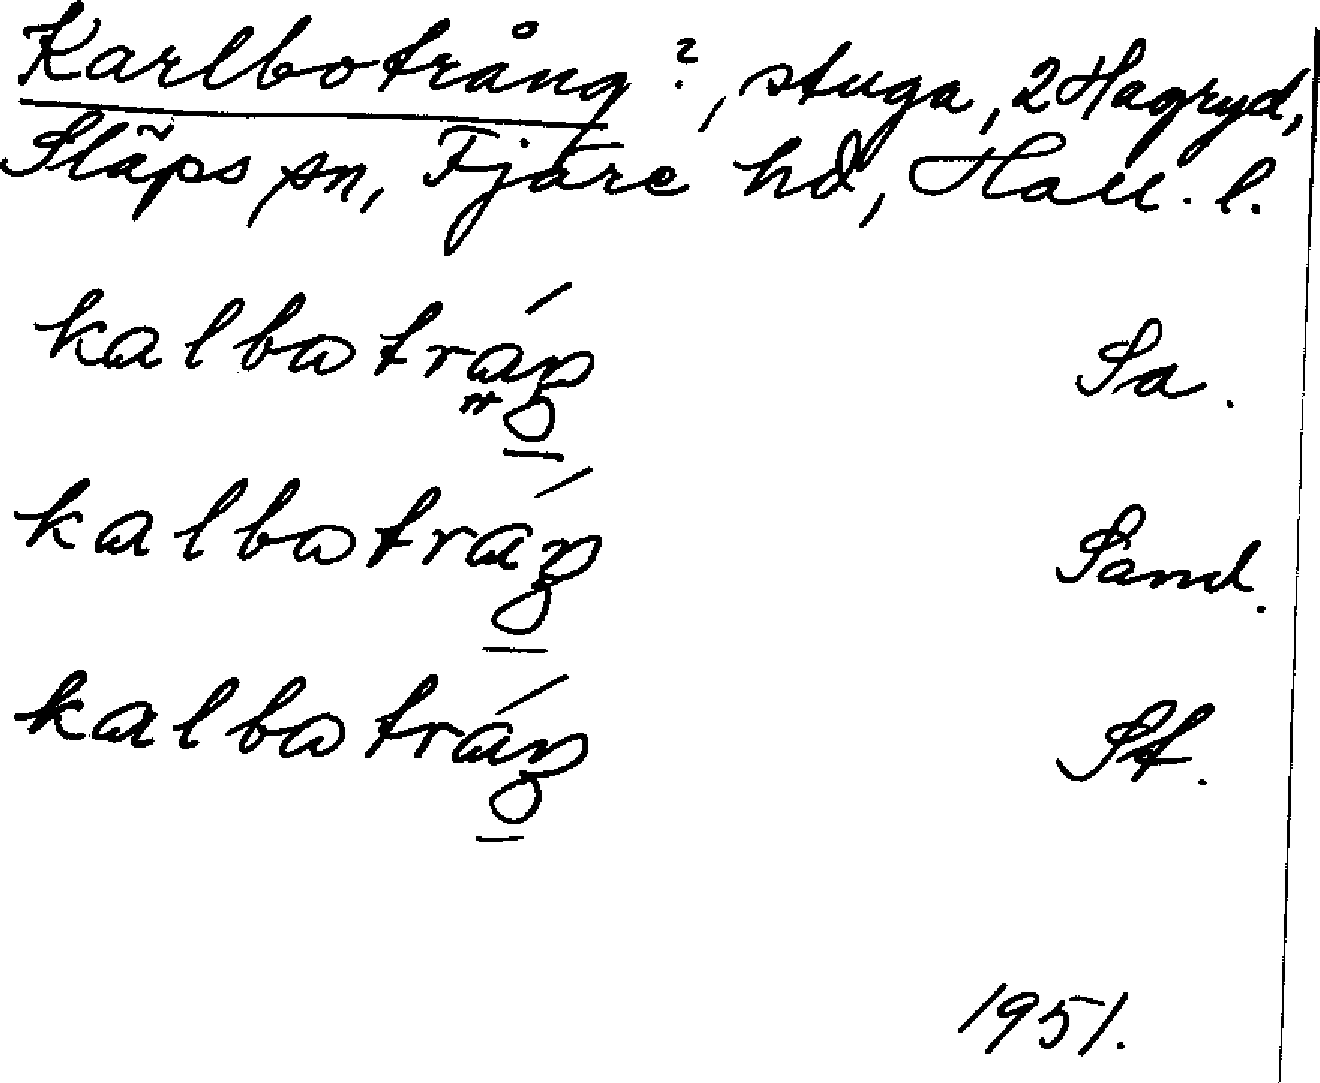 Karlbotrång?, stuga, 2 Hagryd,
Släps sn, Fjäre hd, Hall. l.
kalbotráŋ Sa.
kalbotráŋ Sand.
kalbotráŋ St.
1951.